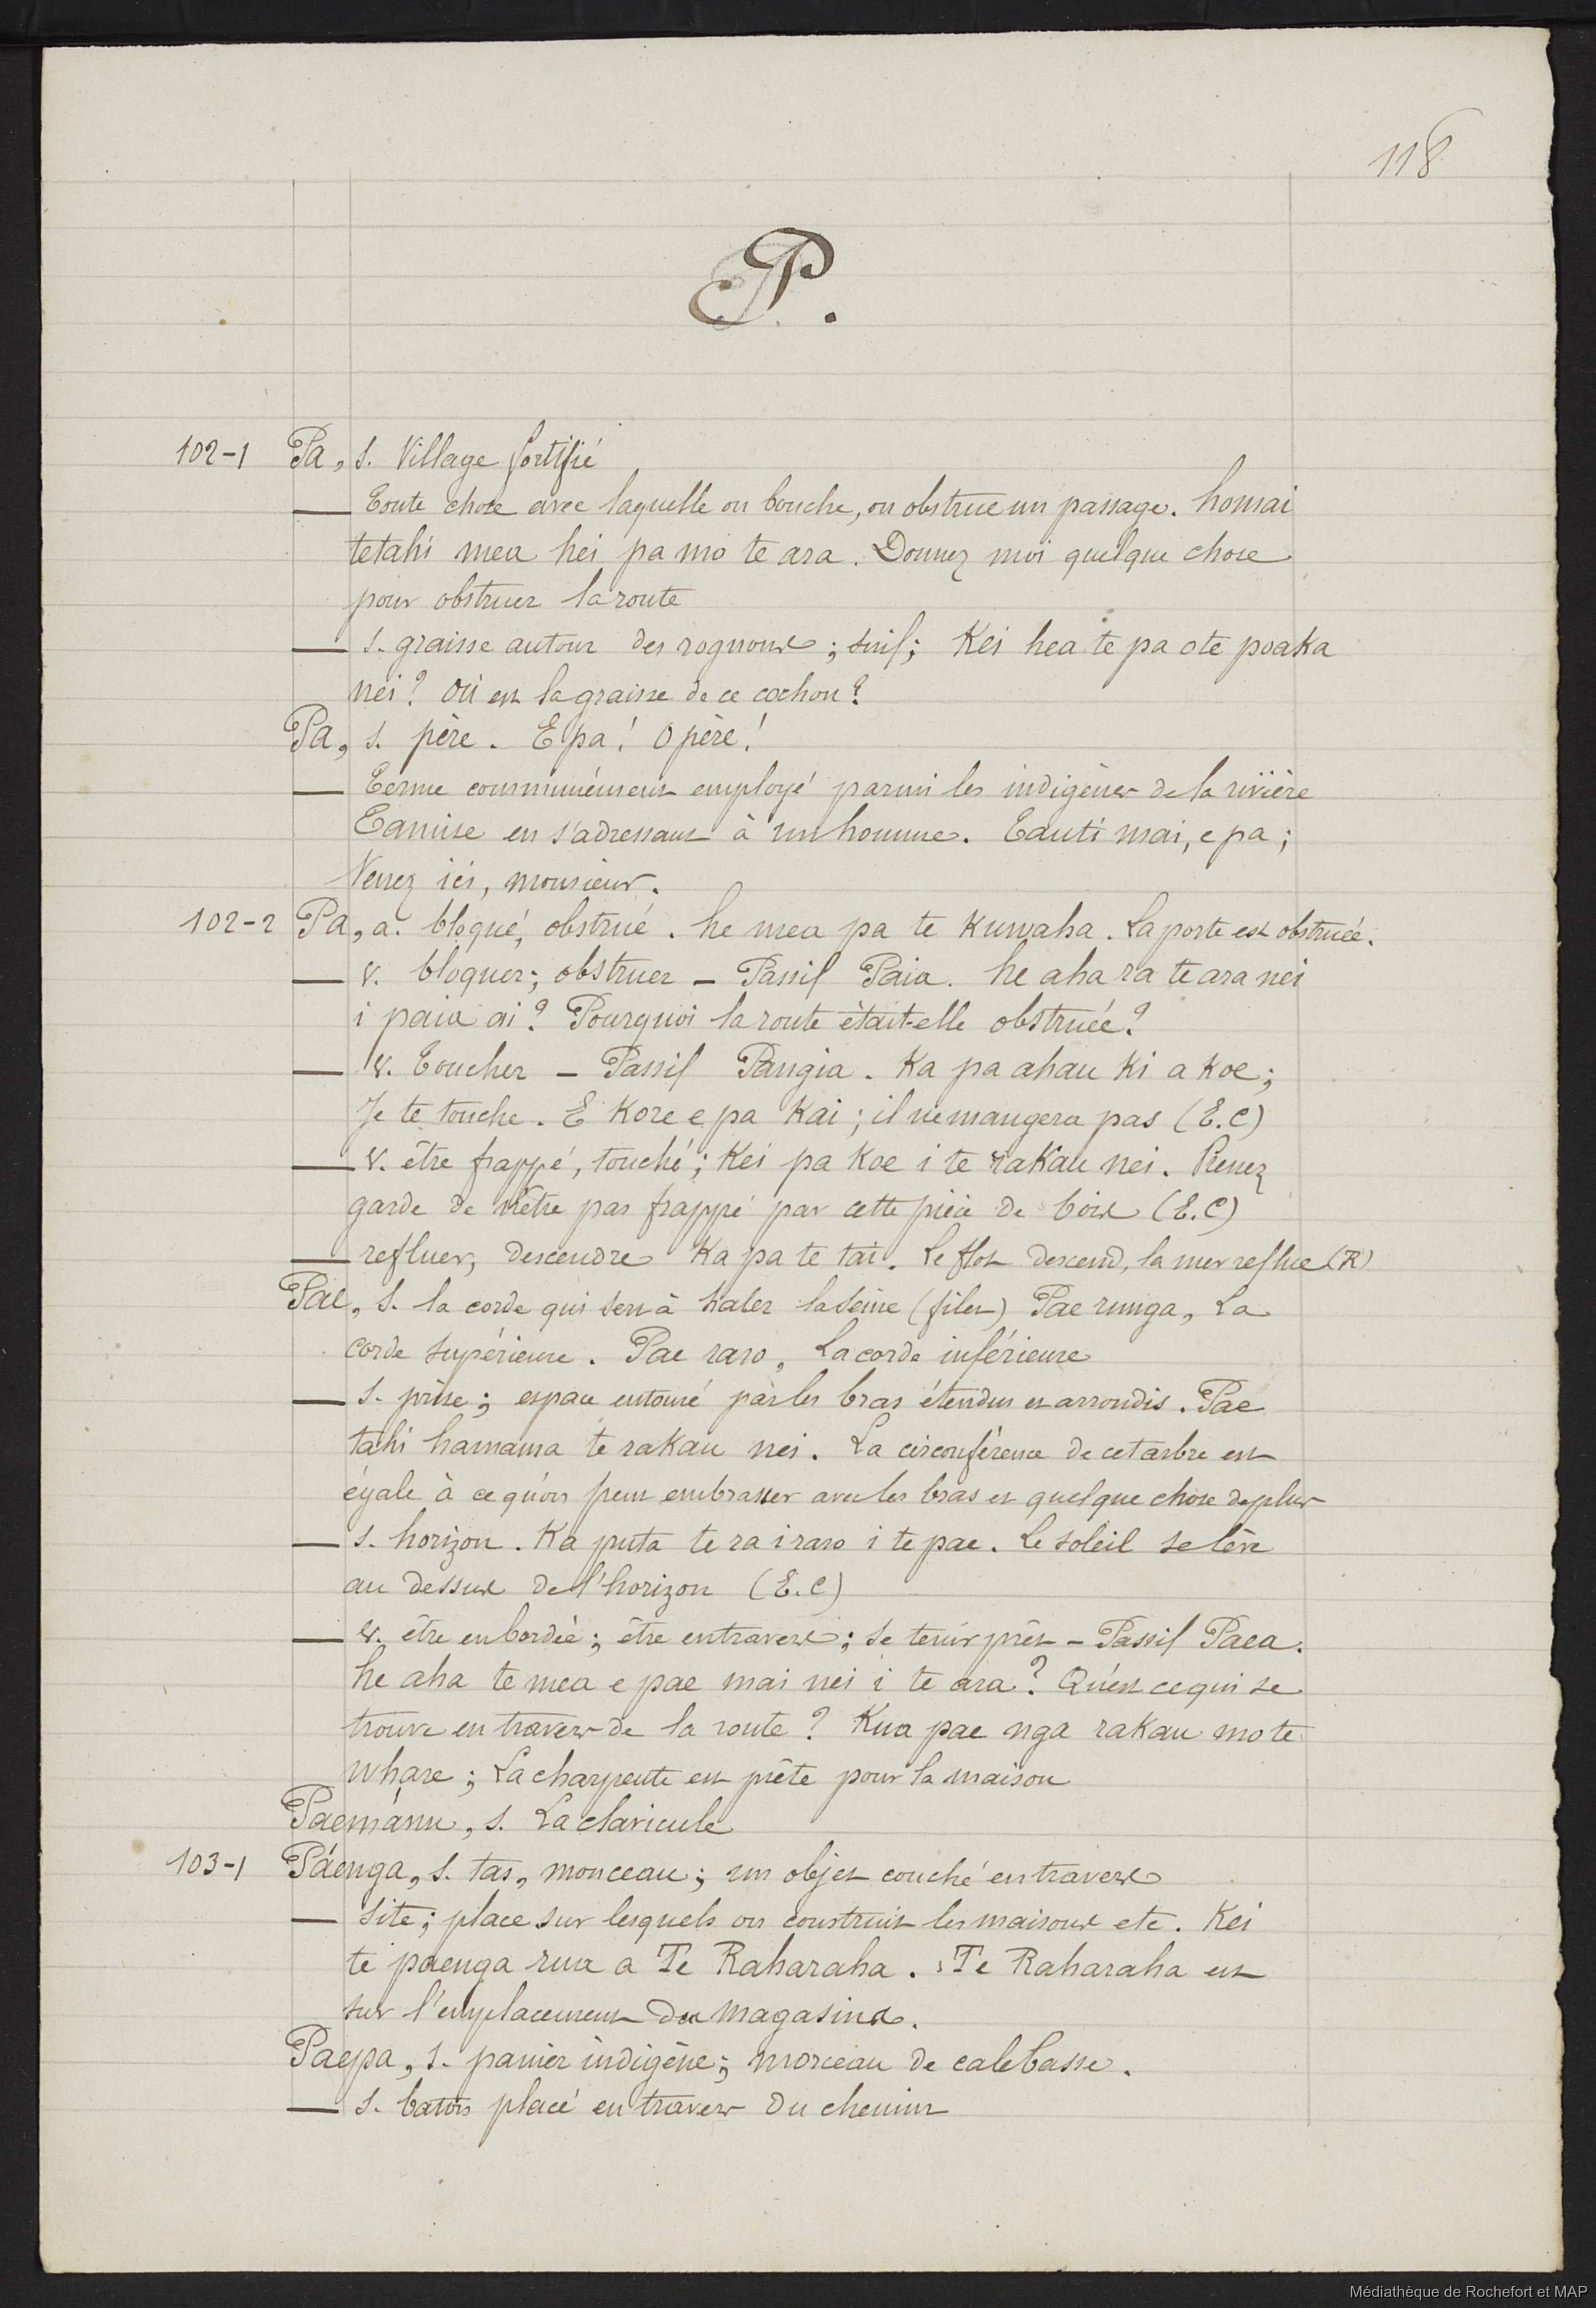 118
P.
102-1 Pa, s. Village fortifié
— Toute chose avec laquelle on bouche, on obstrue un passage. homai
tetahi mea hei pa mo te ara. Donnez moi quelque chose
pour obstruer la route
— s. graisse autour des rognons; suif; Kei hea te pa ote poaka
nei? Où est la graisse de ce cochon?
Pa, s. père. E pa! O père!
— Terme communément employé parmi les indigènes de la rivière
Tamise en s'adressant à un homme. Tauti mai, e pa;
Venez ici, monsieur.
102-2 Pa, a. bloqué, obstrué. he mea pa te Kuwaha. La porte est obstruée.
— v. bloquer; obstruer – Passif Paia. he aha ra te ara nei
i paia ai? Pourquoi la route était-elle obstruée?
— v. Toucher – Passif Pangia. Ka pa ahau ki a koe;
Je te touche. E Kore e pa Kai; il ne mangera pas (E.C)
— v. être frappé, touché; Kei pa Koe i te rakau nei. Prenez
garde de n'être pas frappé par cette pièce de bois (E.C)
— refluer, descendre Ka pa te tai. Le flot descend, la mer reflue (R)
Pae, s. la corde qui sert à haler la seine (filet) Pae runga, La
corde supérieure. Pae raro, La corde inférieure
— s. prise; espace entouré par les bras étendus et arrondis. Pae
tahi hamama te rakau nei. La circonférence de cet arbre est
égale à ce qu'on peut embrasser avec les bras et quelque chose de plus
— s. horizon. Ka puta te ra i raro i te pae. Le soleil se lève
au dessus de l'horizon (E.C)
— v. être en bordée; être en travers; se tenir prêt – Passif Paea.
he aha te mea e pae mai nei i te ara? Qu'est ce qui se
trouve en travers de la route? Kua pae nga rakau mo te
whare; La charpente est prête pour la maison
Paemánu, s. La clavicule
103-1 Páenga, s. tas, monceau; un objet couché en travers
— Site; place sur lesquels on construit les maisons etc. Kei
te paenga rua a Te Raharaha. Te Raharaha est
sur l'emplacement du magasin.
Paepa, s. panier indigène; morceau de calebasse.
— s. baton placé en travers du chemin
Médiathèque de Rochefort et MAP